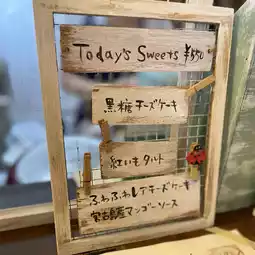 Today's Sweets ¥550
黒糖チーズケーキ
紅いもタルト
ふわふわレアチーズケーキ
宮古島産マンゴーソース